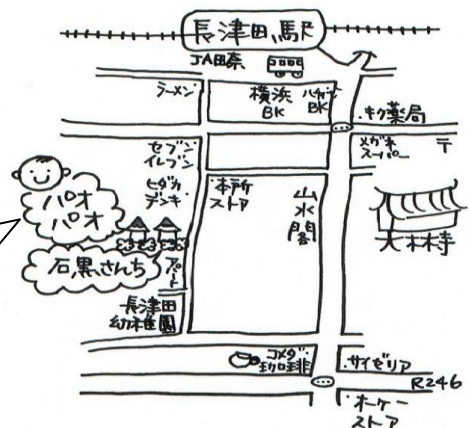 長津田駅
JA田奈
ラーメン
横浜
BK
キク薬局
セブン
イレブン
メガネ
スーパー
〒
ヒダカ
デンキ
本所
ストア
山水閣
パオ
パオ
大林寺
石黒さんち
アパート
長津田
幼稚園
コメダ
珈琲
サイゼリア
R246
オーケー
ストア